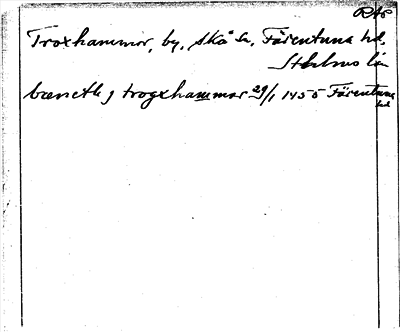 RAP
Troxhammar, by, Skå sn, Färentuna hd,
Sthlms län
benctk j trogxhammar 29/1 1455 Färentuna
hd